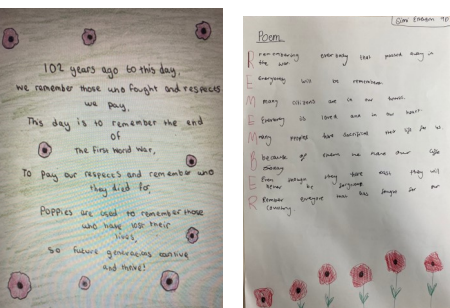 102 years ago to this day,
we remember those who fought and respects
we pay,
This day is to remember the end
OF
The First World War,
To pay our respects and remember who
they died for,
Poppies are used to remember those
who have lost their
lives,
so future generations can live
and thrive!
Poem
Remembering everybody that passed away in
the war.
Everybody will be remembered.
Many citizens are in our hearts.
Everybody is loved and in our heart.
Many peoples had sacrificed their life for us.
Because of them we have our life
Even though they have past they will
never be forgotten
Remember everyone that has fought for our
Country